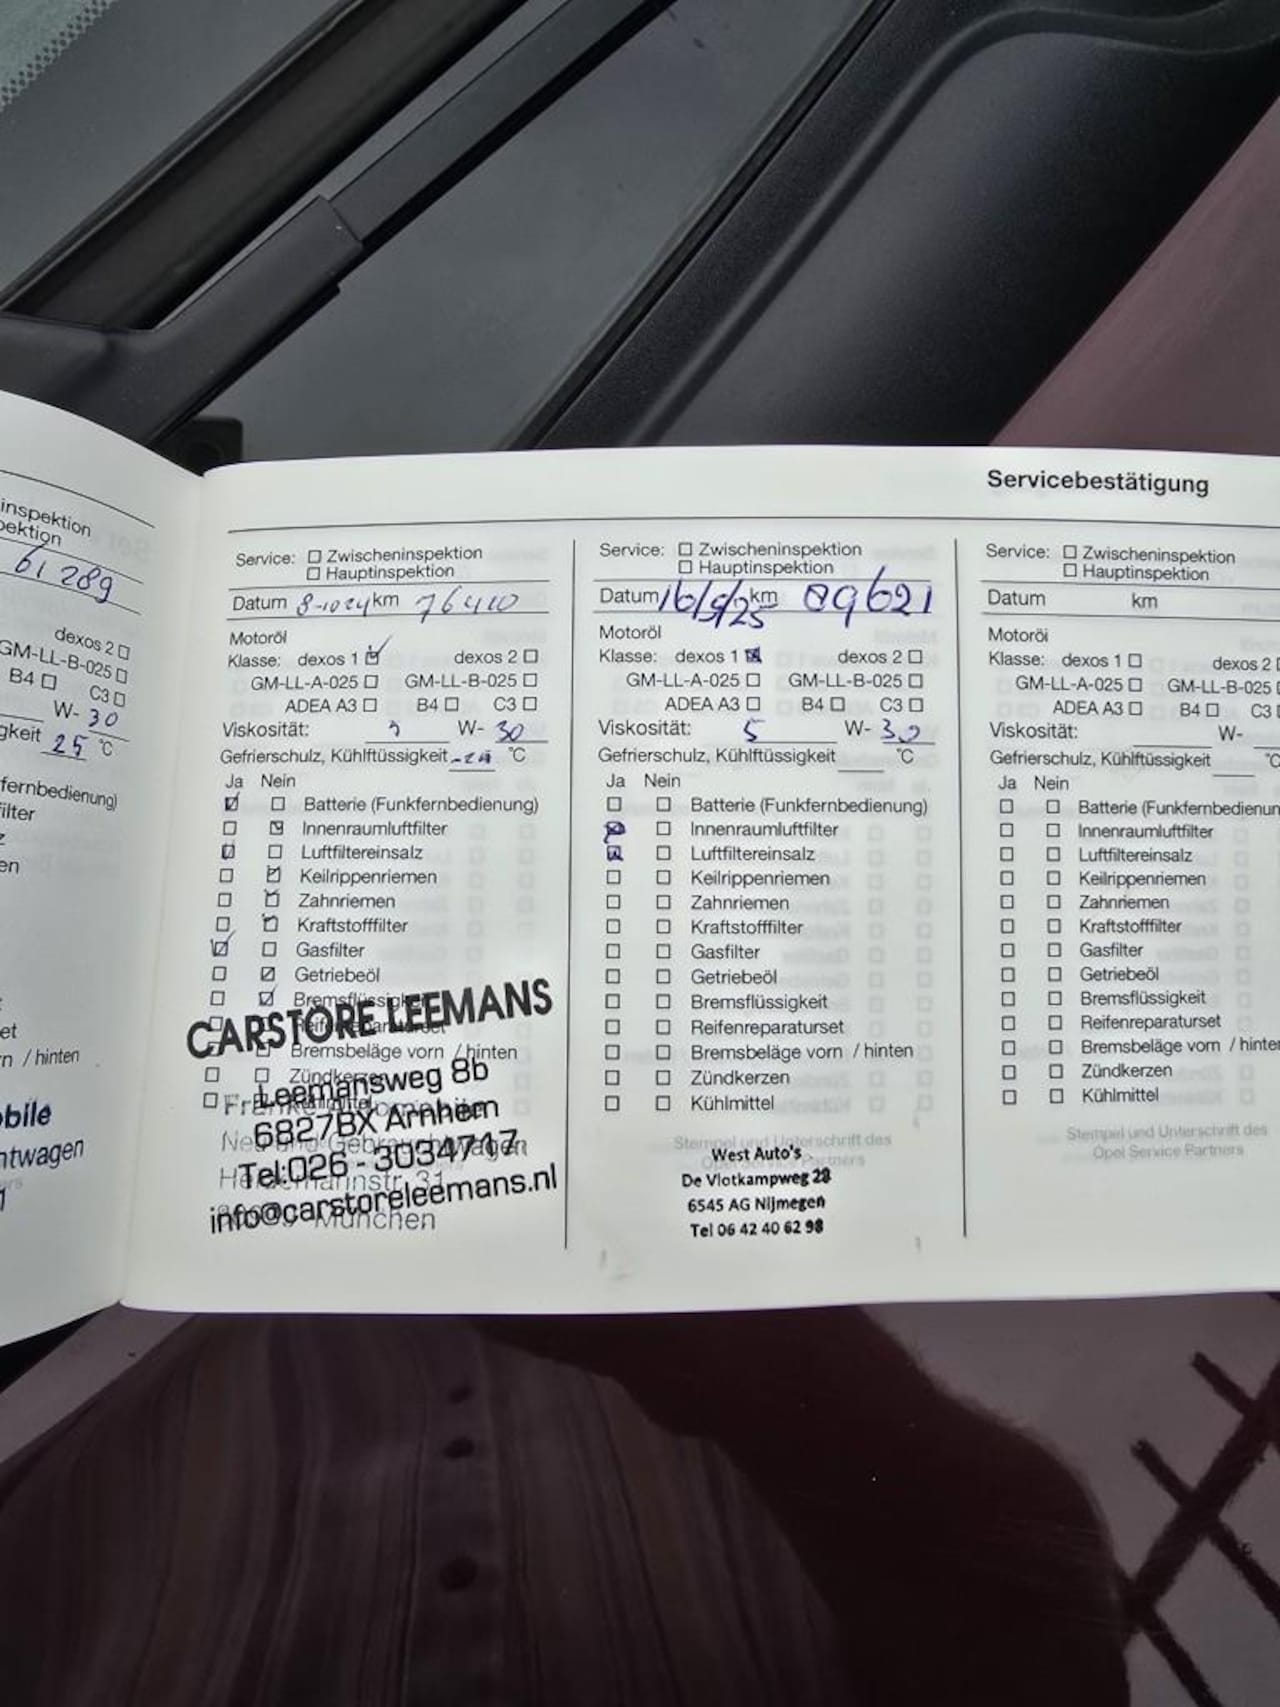 Servicebestätigung
inspektion
pektion
61 289
dexos 2
GM-LL-B-025
B4 C3
W- 30
gkeit 25 °C
fernbedienung)
ilter
z
en
et
rn / hinten
obile
htwagen
Service: Zwischeninspektion
Hauptinspektion
Datum 8-10 24 km 76410
Motoröl
Klasse: dexos 1 dexos 2
GM-LL-A-025 GM-LL-B-025
ADEA A3 B4 C3
Viskosität: W- 30
Gefrierschulz, Kühlftüssigkeit °C
Ja Nein
Batterie (Funkfernbedienung)
Innenraumluftfilter
Luftfiltereinsalz
Keilrippenriemen
Zahnriemen
Kraftstofffilter
Gasfilter
Getriebeöl
Bremsflüssigkeit
CARSTORE LEEMANS
Reifenreparaturset
Bremsbeläge vorn / hinten
Zündkerzen
Leemansweg 8b
6827BX Arnhem
Tel:026 - 3034717
info@carstoreleemans.nl
München
Service: Zwischeninspektion
Hauptinspektion
Datum 16/5/25 km 89621
Motoröl
Klasse: dexos 1 dexos 2
GM-LL-A-025 GM-LL-B-025
ADEA A3 B4 C3
Viskosität: 5 W- 30
Gefrierschulz, Kühlftüssigkeit °C
Ja Nein
Batterie (Funkfernbedienung)
Innenraumluftfilter
Luftfiltereinsalz
Keilrippenriemen
Zahnriemen
Kraftstofffilter
Gasfilter
Getriebeöl
Bremsflüssigkeit
Reifenreparaturset
Bremsbeläge vorn / hinten
Zündkerzen
Kühlmittel
Stempel und Unterschrift des
Opel Service Partners
West Auto's
De Vlotkampweg 28
6545 AG Nijmegen
Tel 06 42 40 62 98
Service: Zwischeninspektion
Hauptinspektion
Datum km
Motoröl
Klasse: dexos 1 dexos 2
GM-LL-A-025 GM-LL-B-025
ADEA A3 B4 C3
Viskosität: W-
Gefrierschulz, Kühlftüssigkeit °C
Ja Nein
Batterie (Funkfernbedienun
Innenraumluftfilter
Luftfiltereinsalz
Keilrippenriemen
Zahnriemen
Kraftstofffilter
Gasfilter
Getriebeöl
Bremsflüssigkeit
Reifenreparaturset
Bremsbeläge vorn / hinte
Zündkerzen
Kühlmittel
Stempel und Unterschrift des
Opel Service Partners